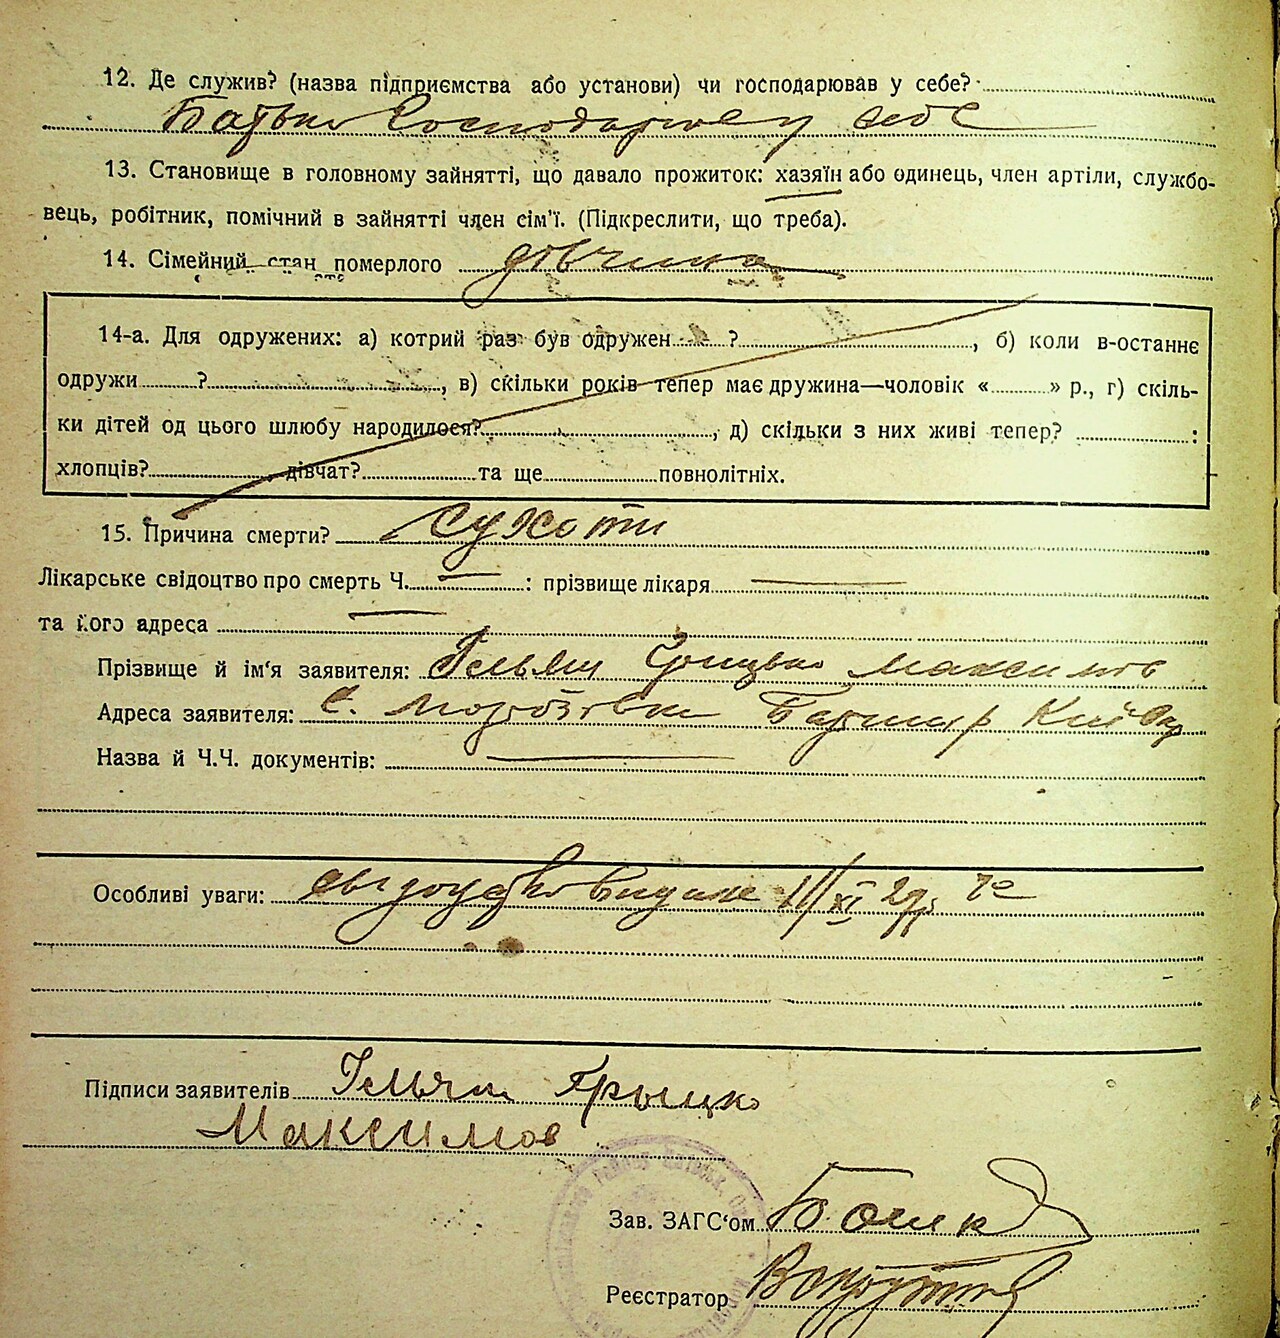 12. Де служив? (назва підприємства або установи) чи господарював у себе?
Батько господарює у себе
13. Становище в головному зайнятті, що давало прожиток: хазяїн або одинець, член артіли, службо-
вець, робітник, помічний в зайнятті член сім'ї. (Підкреслити, що треба).
14. Сімейний стан померлого дівчина
14-а. Для одружених: а) котрий раз був одружен ?, б) коли в-останнє
одружи ?, в) скільки років тепер має дружина—чоловік « » р., г) скіль-
ки дітей од цього шлюбу народилося?, д) скільки з них живі тепер? :
хлопців? дівчат? та ще повнолітніх.
15. Причина смерти? Сухоти
Лікарське свідоцтво про смерть Ч. : прізвище лікаря
та його адреса
Прізвище й ім'я заявителя: Грицько Максимів
Адреса заявителя: с. Морозівка Баришр Київ
Назва й Ч.Ч. документів:
Особливі уваги: видане 11/XI 29р.
Підписи заявителів Грыцко
Максимов
Зав. ЗАГС'ом
Реєстратор